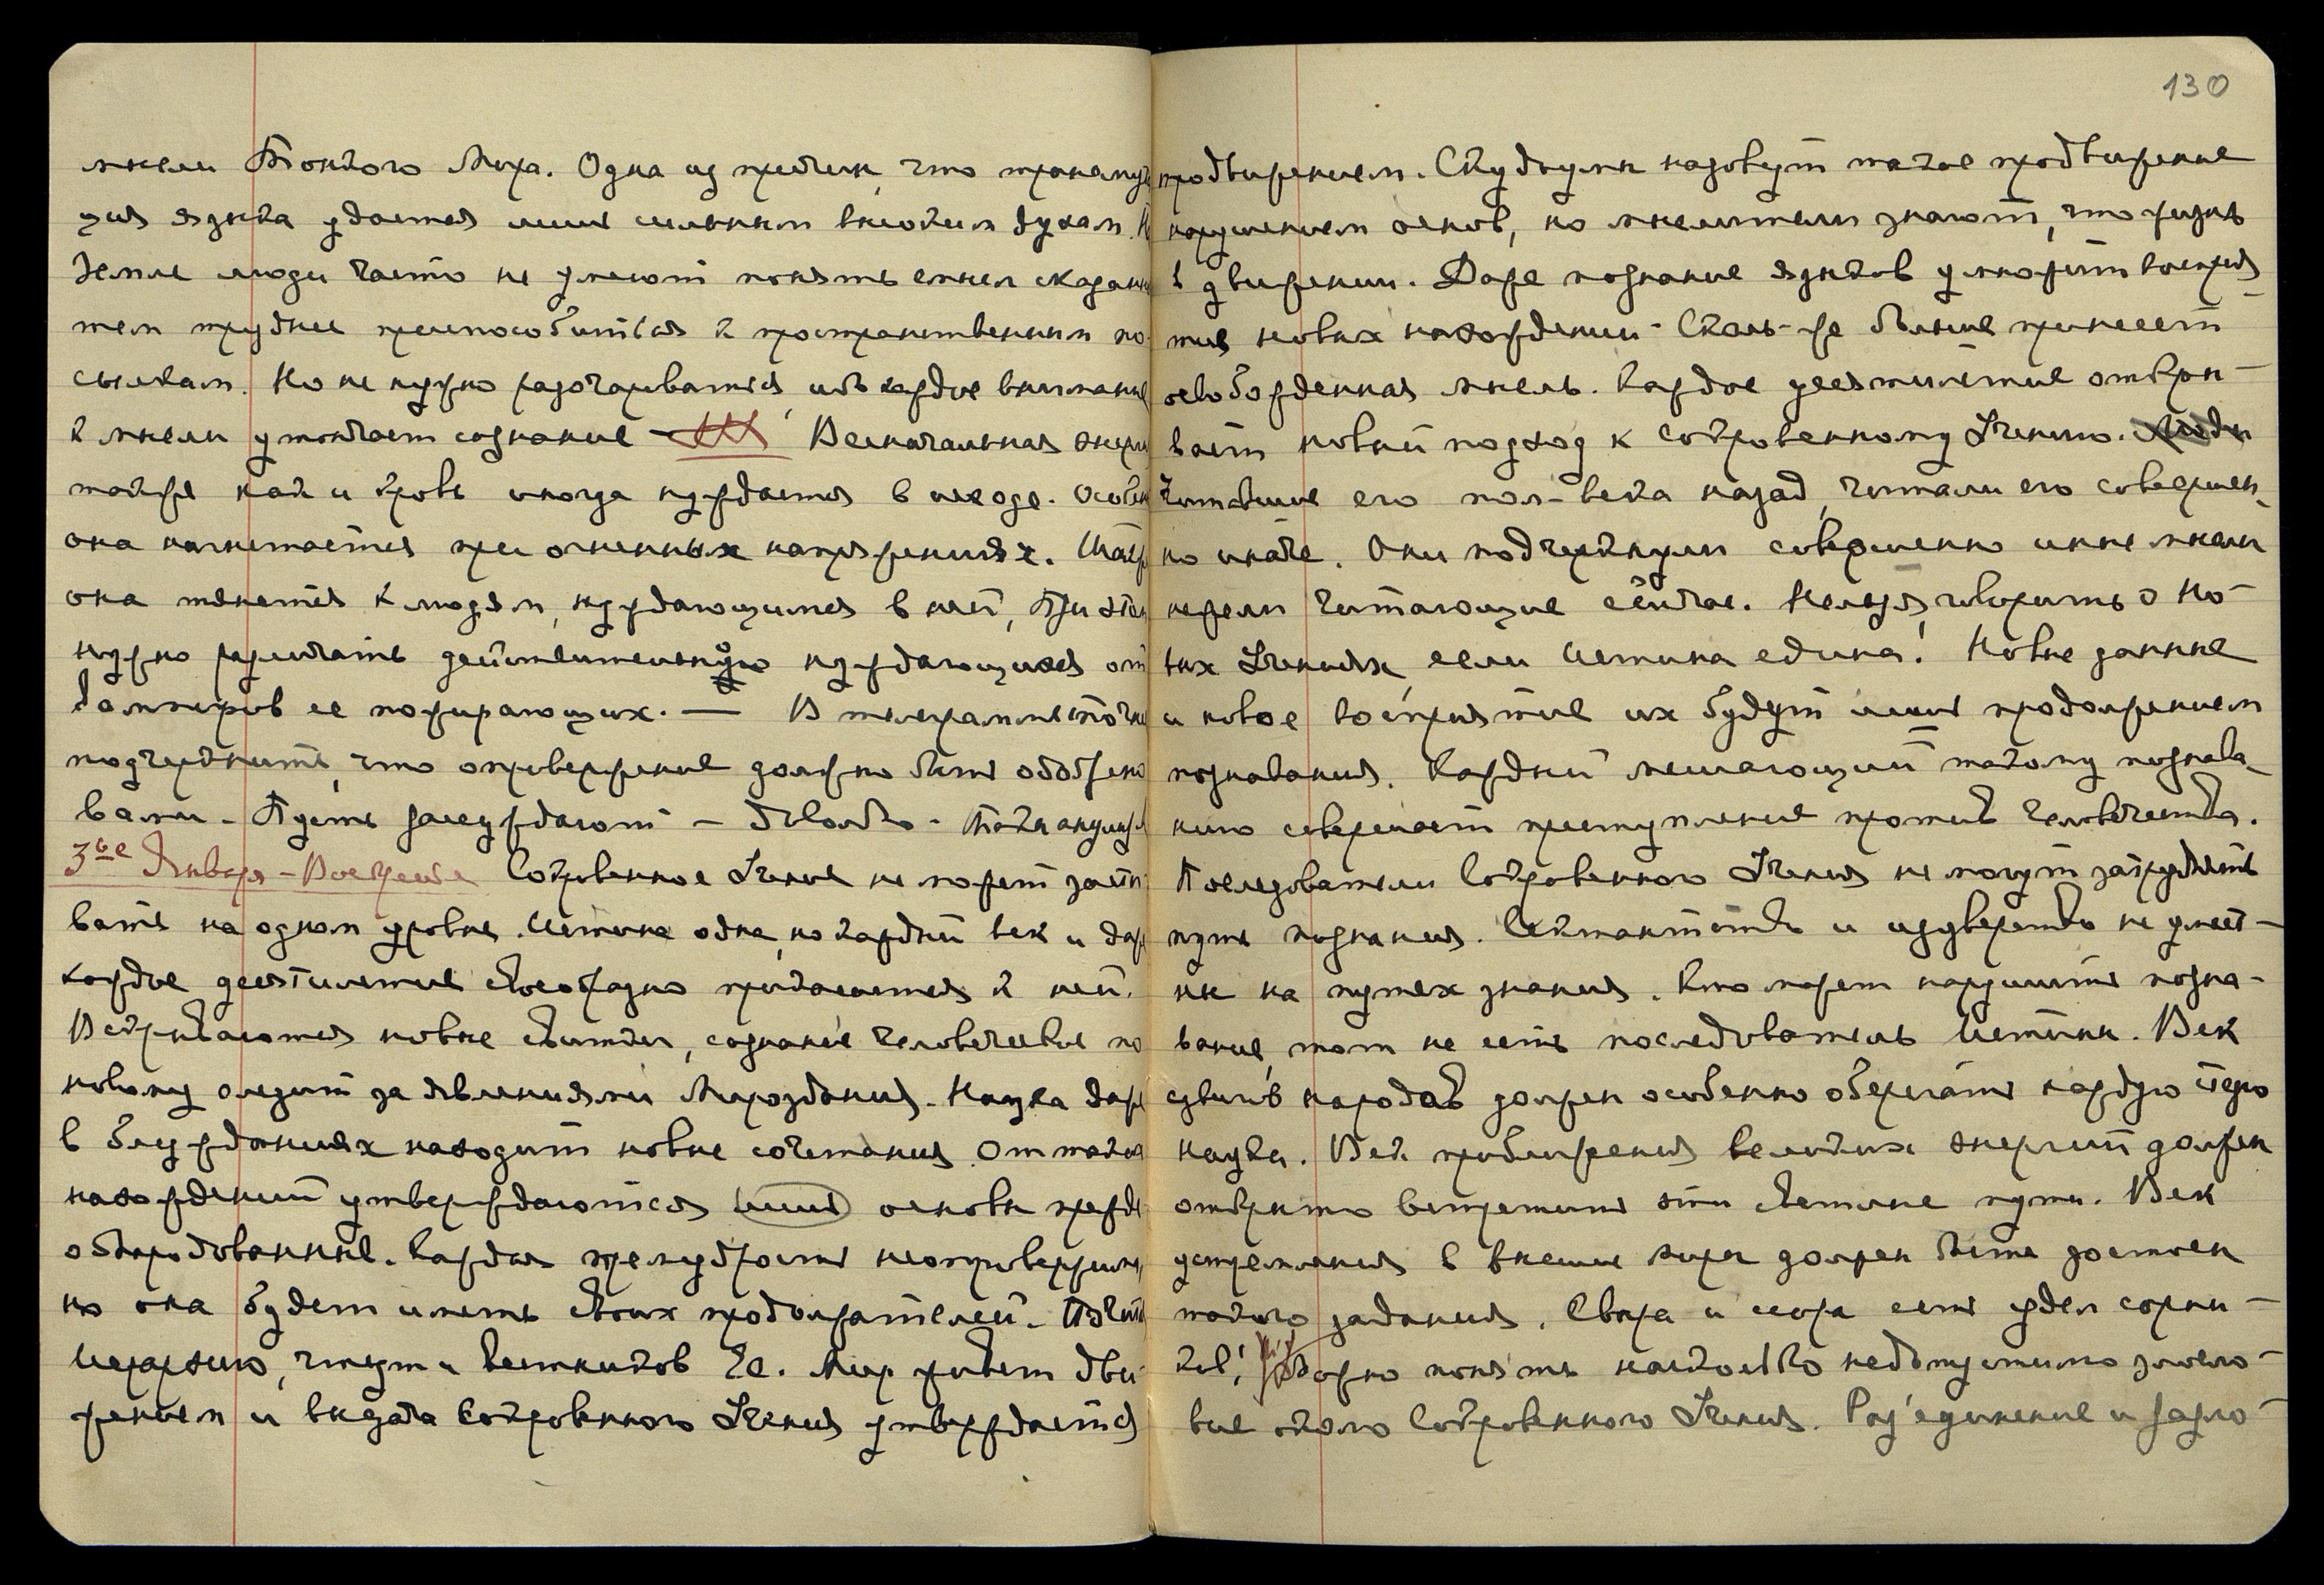 130
мысли Тонкого Мира. Одна из причин, что транспу
ция языка удается лишь сильным высоким духам. Н
Земле люди часто не умеют понять смысл сказанн
тем труднее приспособиться к пространственным по
сылкам. Но не нужно разочаровываться, ибо каждое внимание
к мысли утончает сознание — Всеначальная энерги
также как и кровь иногда нуждается в исходе. Особен
она нагнетается при огненных напряжениях. Также
она тянется к людям, нуждающимся в ней, При этом
нужно различать действительную нуждающихся от
вампиров ее пожирающих. — В телеграмме точно
подчеркните, что опровержение должно быть одобрено
вами — Пусть замедждают — Довольно.
3ье Января – Воскресенье Сокровенное Учение не может засты
вать на одном уровне. Истина одна, но каждый век и даже
каждое десятилетие своеобразно прикасается к ней.
Вскрываются новые свитки, сознание человеческое по
новому следит за явлениями Мироздания. Наука даже
в блужданиях находит новые сочетания. От таких
нахождений утверждаются лишь основы прежде
обнародованные. Каждая премудрость неопровержима,
но она будет иметь своих продолжателей. Почита
Иерархию, чтут и вестников Ее. Мир живет дви
жением и выдача Сокровенного Учения утверждается
продвижением. Скудоумы назовут такое продвижение
нарушением основ, но мыслители знают, что жизнь
в движении. Даже познание языков умножит восприя
тие новых нахождений – Сколь-же больше принесет
освобожденная мысль. Каждое десятилетие откры–
вает новый подход к Сокровенному Учению. Люди
Читавшие его пол-века назад, читали его совершен–
но иначе. Они подчеркнули совершенно иные мысли
нежели читающие сейчас. Нельзя говорить о Но–
вых Учениях, если Истина едина! Новые данные
и новое восприятие их будут лишь продолжением
познавания. Каждый мешающий такому познава–
нию совершает преступление против человечества.
Последователи Сокровенного Учения не могут затруднять
путь познания. Сектантство и изуверство не умест–
ны на путях знания. Кто может нарушить позна–
вание, тот не есть последователь Истины. Век
сдвигов народов должен особенно оберегать каждую стезю
науки. Век приближения великих энергий должен
открыто встретить эти светлые пути. Век
устремления в высшие миры должен быть достоин
такого задания. Свара и ссора есть удел сорни–
ков! должно понять насколько недопустимо злосло–
вие около Сокровенного Учения. Раз'единение и разло–